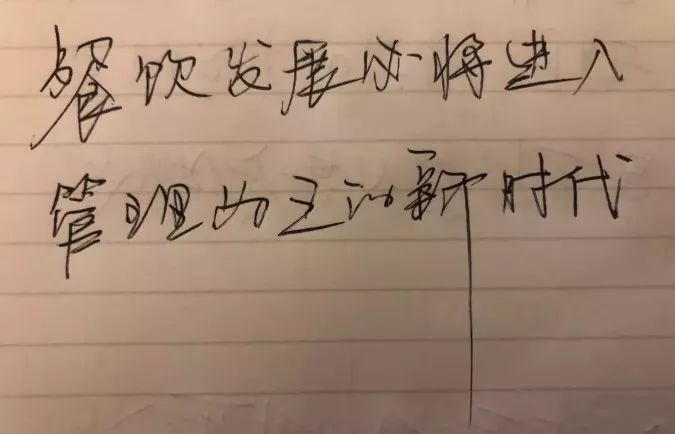 餐饮发展必将进入
管理为王的新时代